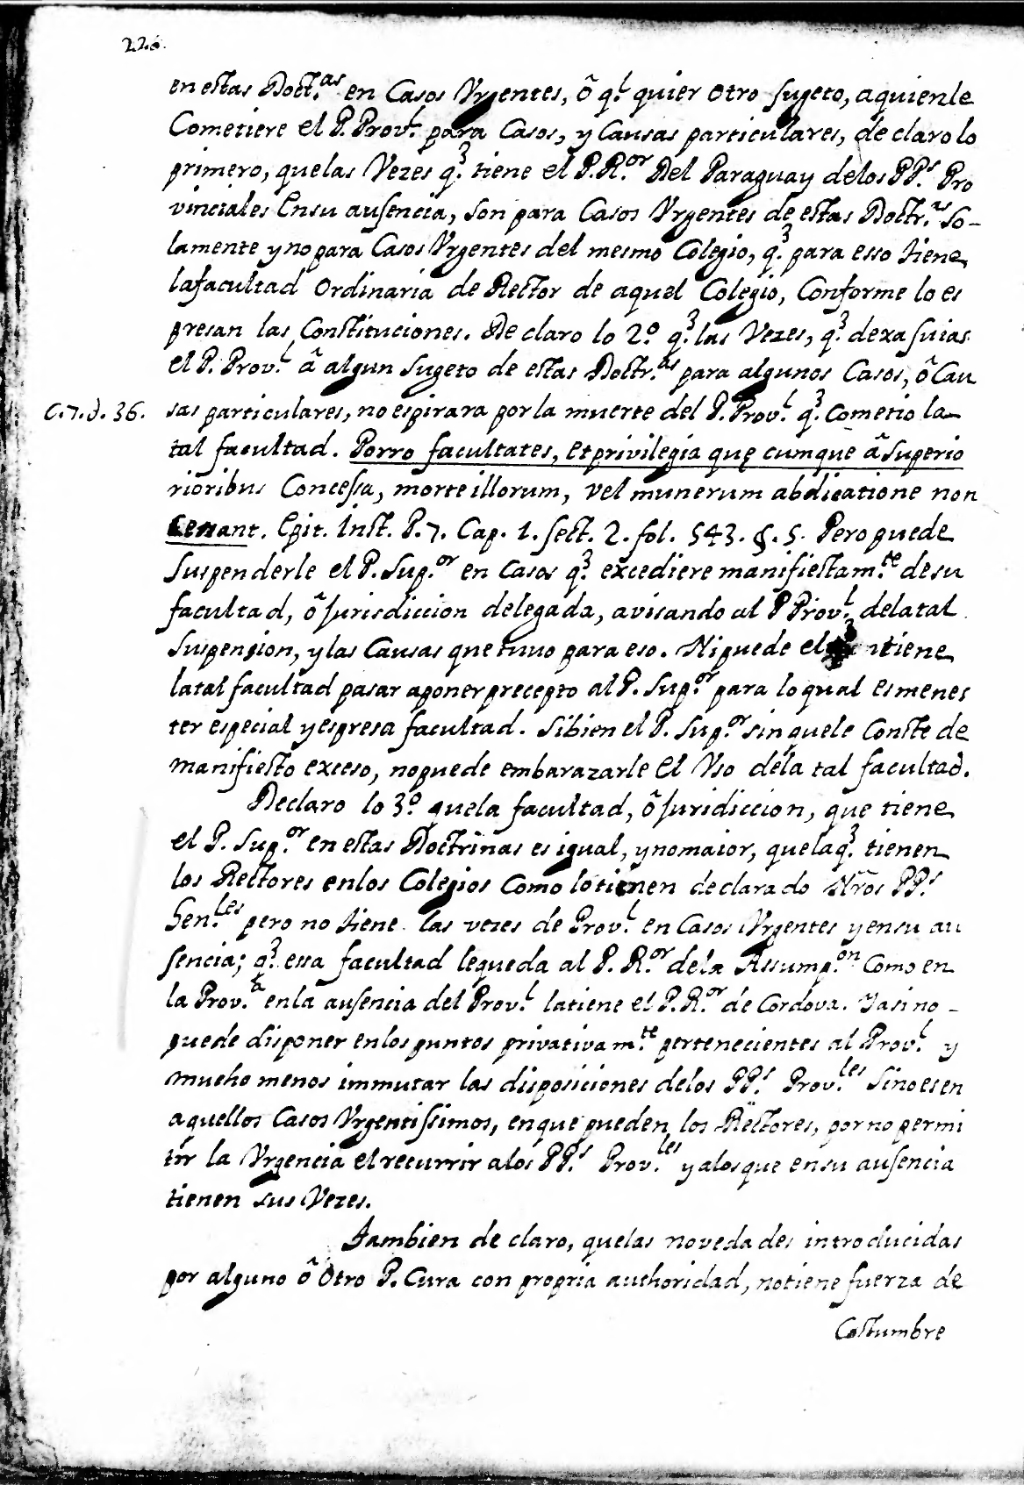 226.
en estas Doct.as en Casos Vrgentes, ô q.l quier otro sugeto, aquienle
Cometiere el P. Prov.l para Casos, y Causas particulares, de claro lo
primero, quelas Vezes q.3 tiene el P. R.or Del Paraguay delos PP.s Pro
vinciales Ensu ausencia, son para Casos Vrgentes de estas Doctr.as So-
lamente y no para Casos Vrgentes del mesmo Colegio, q.3 para esso tiene
lafacultad Ordinaria de Rector de aquel Colegio, Conforme lo es
presan las Constituciones. De claro lo 2.o q.3 las Vezes, q.3 dexa suias
el P. Prov.l â algun sugeto de estas Doctr.as para algunos Casos, ô Cau
C.7.d.36. sas particulares, no espirara por la muerte del P. Prov.l q.3 Cometio la
tal facultad. Porro facultates, et privilegia quę cumque â Superio
rioribus Concessa, morte illorum, vel munerum abdicatione non
Cessant. Epit. Inst. P.7. Cap. 1. sect. 2. fol. 543. §. 5. Pero puede
Suspenderle el P. Sup.or en casos q.3 excediere manifiestam.te de su
facultad, ô Jurisdiccion delegada, avisando al P Prov.l delatal
Suspension, y las Causas que tuvo para eso. Ni puede el tiene
latal facultad pasar aponer precepto al P. Sup.or para lo qual es menes
ter especial y espresa facultad. Sibien el P. Sup.or sin quele Conste de
manifiesto exceso, nopuede embarazarle el Vso dela tal facultad.
Declaro lo 3.o quela facultad, ô Juridiccion, que tiene
el P. Sup.or en estas Doctrinas es igual, y nomaior, quela q.3 tienen
los Rectores enlos Colegios Como lo tienen declarado Nr̃os PP.s
Gen.les pero no tiene las vezes de Prov.l en Casos Vrgentes y ensu au
sencia; q.3 essa facultad lequeda al P. R.or dela Assump.on Como en
la Prov.a enla ausencia del Prov.l latiene el P. R.or de Cordova. Y asi no -
puede disponer enlos puntos privativam.te pertenecientes al Prov.l y
mucho menos immutar las disposiciones delos PP.s Prov.les Sino es en
aquellos Casos Vrgentissimos, en que pueden los Rectores, por no permi
tir la Vrgencia el recurrir alos PP.s Prov.les y alosque ensu ausencia
tienen sus Vezes.
Tambien de claro, quelas novedades introducidas
por alguno ô Otro P. Cura con propria authoridad, notiene fuerza de
Costumbre